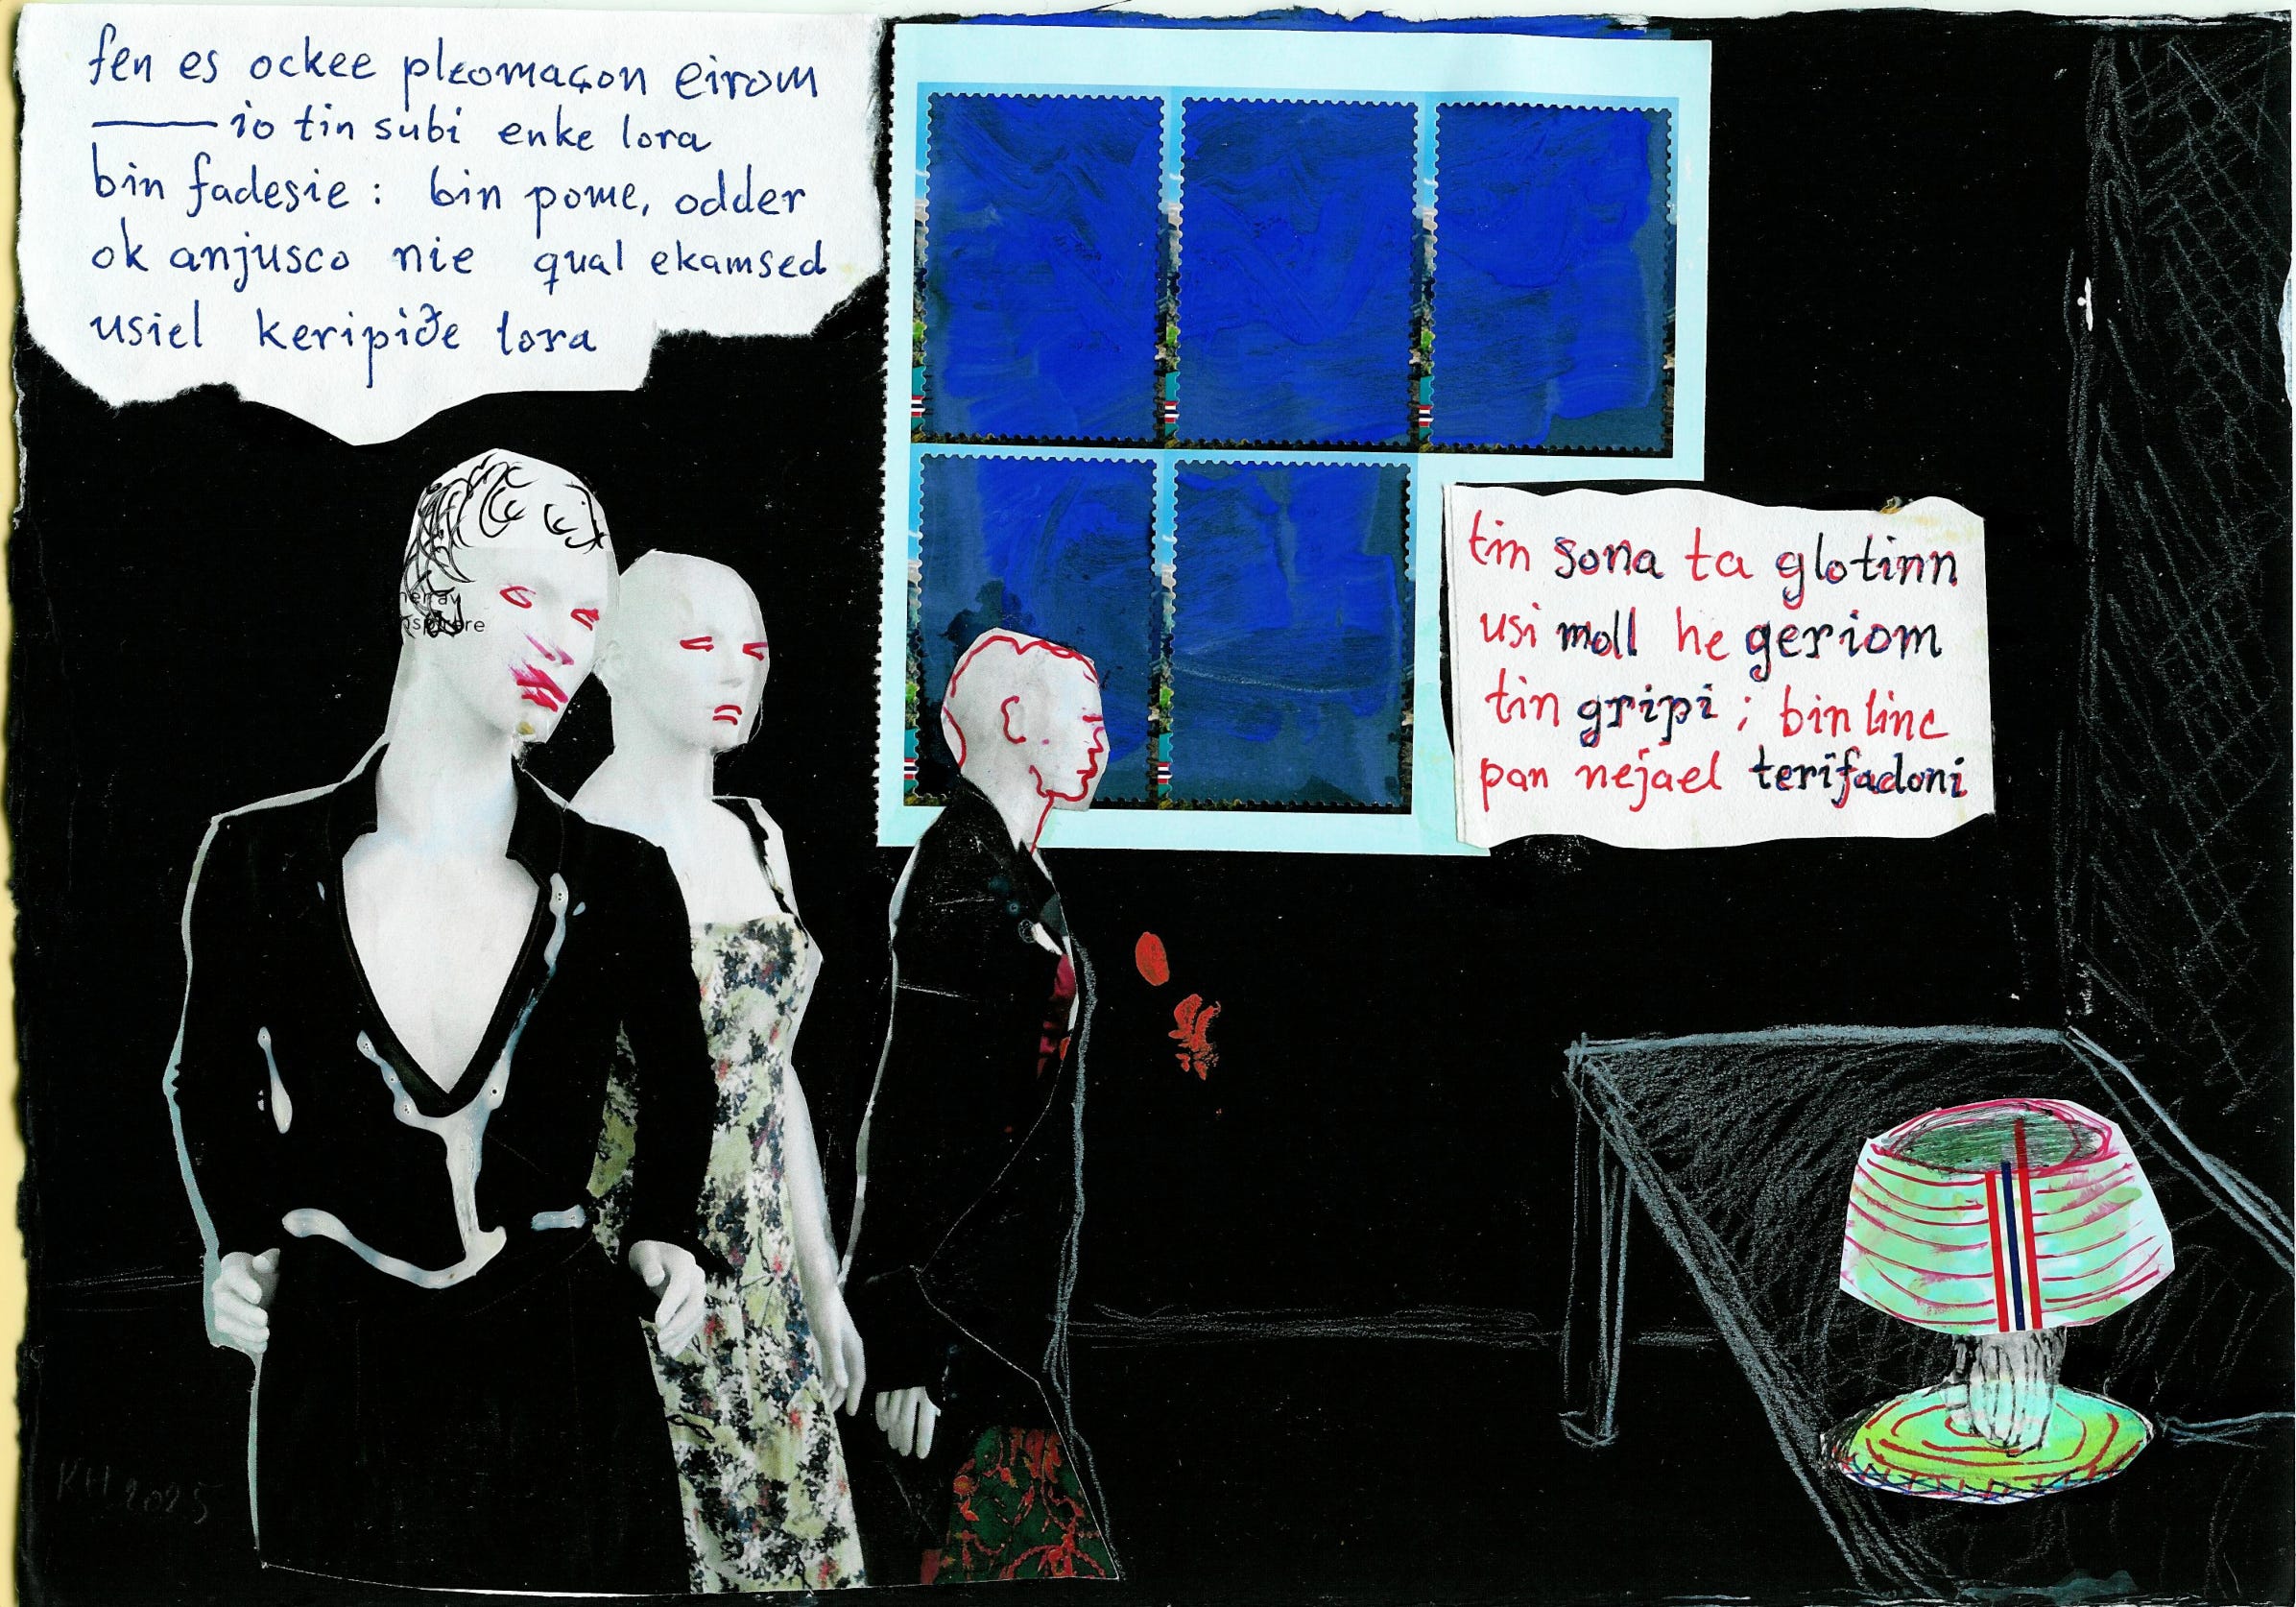 fen es ockee pleomaçon eirom
—— io tin subi enke lora
bin fadesie : bin pome, odder
ok anjusco nie qual ekamsed
usiel keripiðe lora
tin sona ta glotinn
usi moll he geriom
tin gripi ; bin linc
pan nejael terifadoni
KH 2025